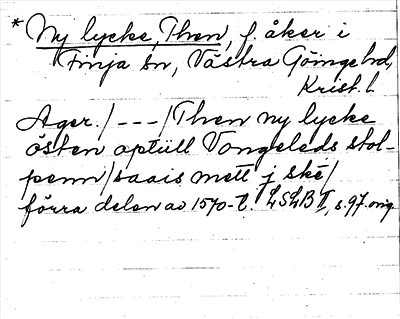 * Ny lycke, Then, f. åker i
Finja sn, Västra Göinge hd,
Krist. l
Ager. / - - - / Then ny lycke
östen optiill Vongeleds stol-
penn / saais mett j ské /
förra delen av 1570-t. LSLB II, s. 97. orig.